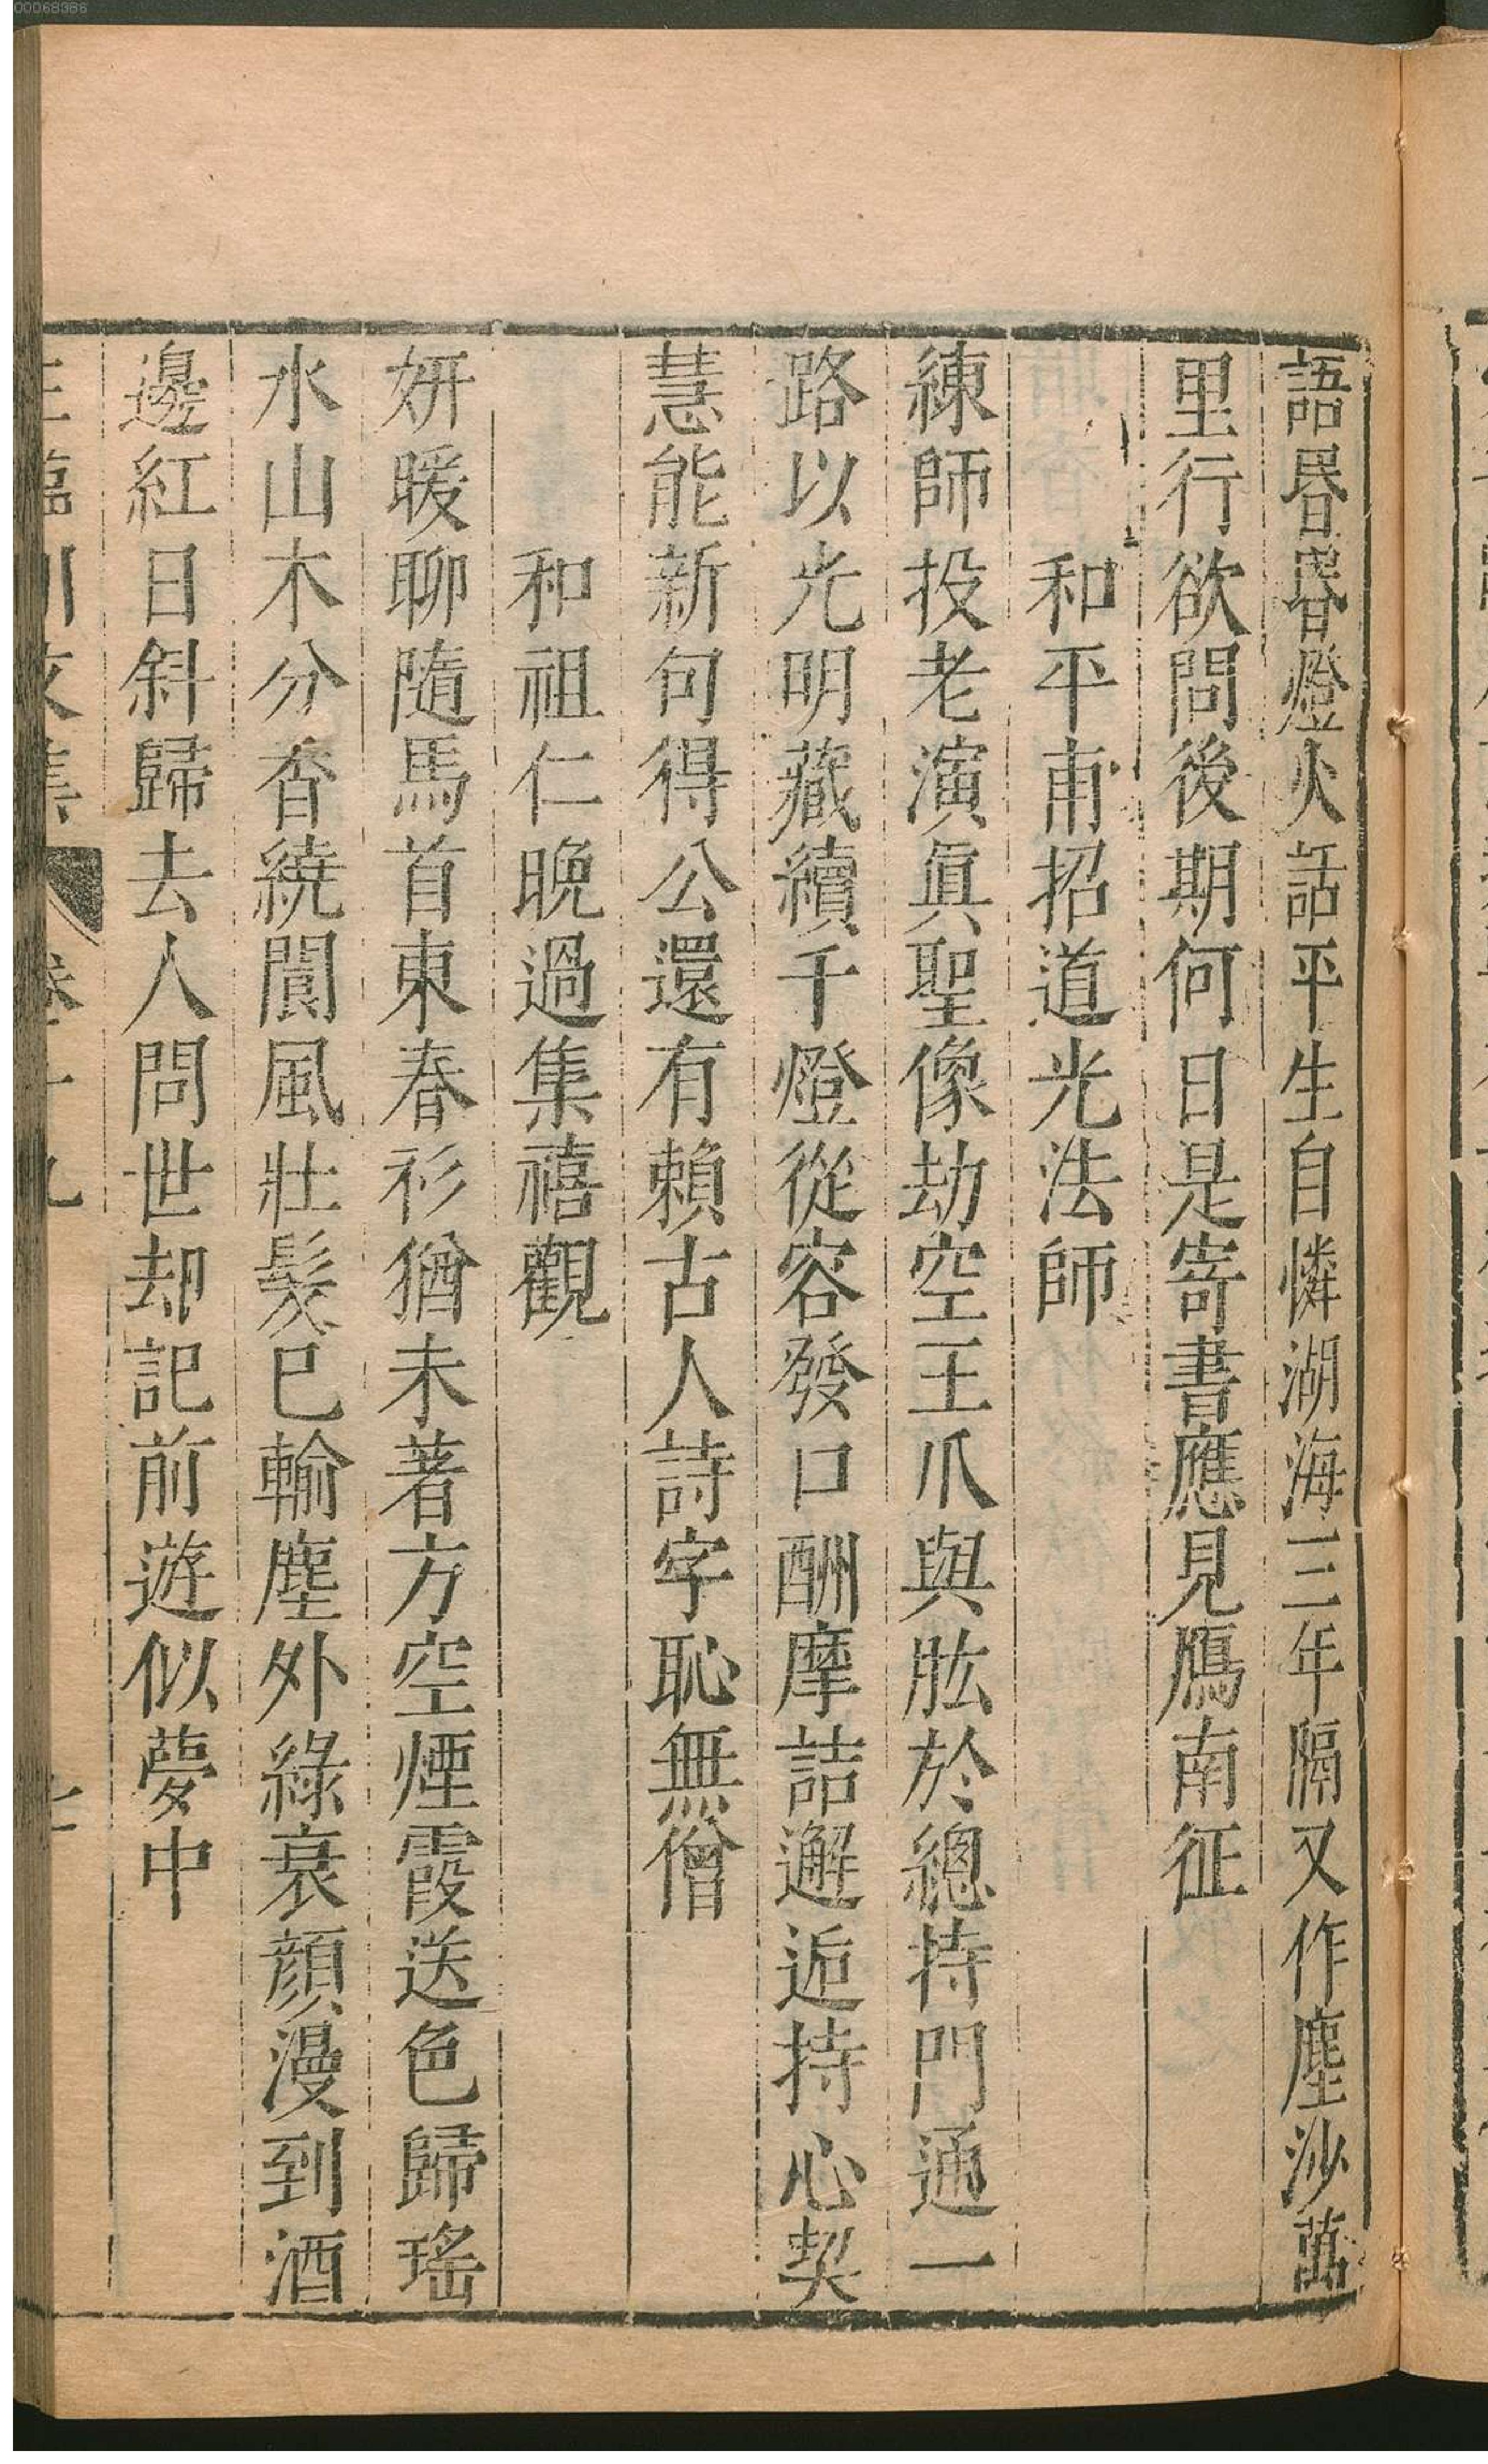 00068386
語昬昬燈火話平生自憐湖海三年隔又作塵沙萬
里行欲問後期何日是寄書應見鴈南征
和平甫招道光法師
練師投老演眞聖像劫空王爪與肱於總持門通一
路以光明藏續千燈從容發口酬摩詰邂逅持心契
慧能新句得公還有賴古人詩字恥無僧
和祖仁晚過集禧觀
妍暖聊隨馬首東春衫猶未著方空煙霞送色歸瑤
水山木分香繞閬風壯髮已輸塵外綠衰顔漫到酒
邊紅日斜歸去人問世却記前遊似夢中